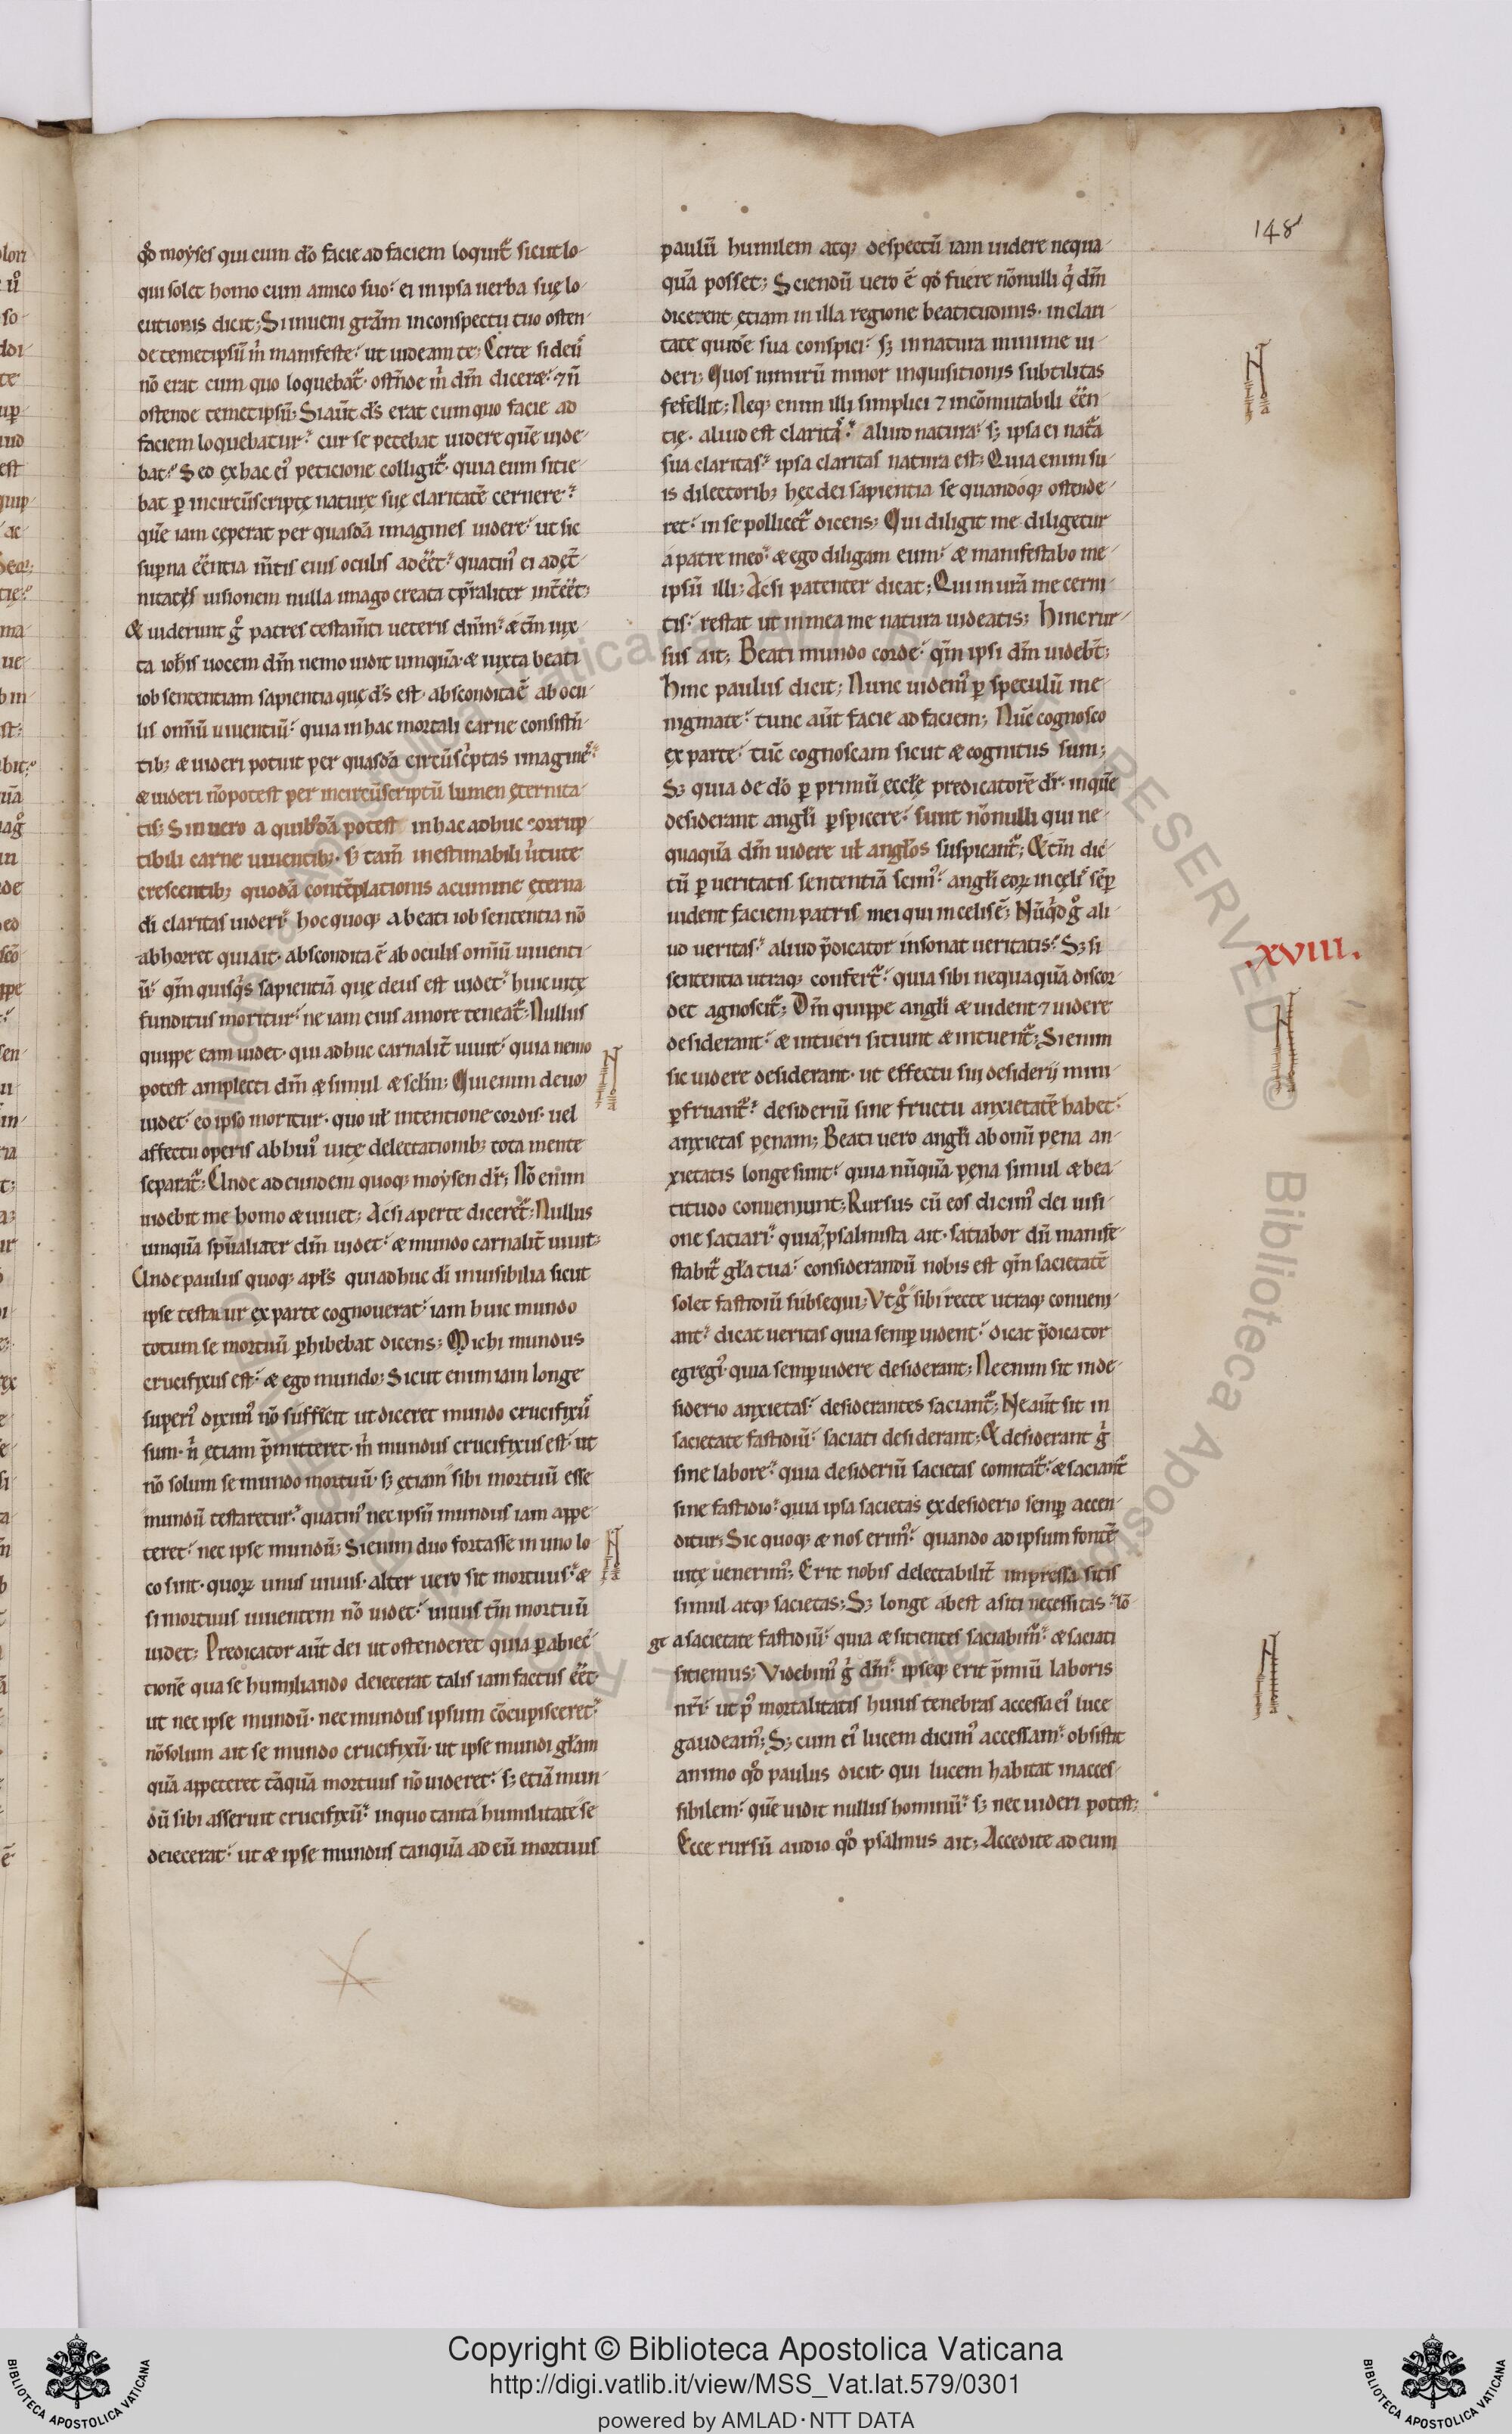 148
qđ moyses qui cum dō facie ad faciem loquit̄ sicut lo-
qui solet homo cum amico suo. ei in ipsa uerba suę lo-
cutionis dicit; Si inueni grām in conspectu tuo osten-
de temetipsū m̄ manifeste. ut uideam te; Certe si deū
nō erat cum quo loquebat̄. ostn̄de m̄ dm̄ diceræ. ⁊ n̄
ostende temetipsū; Si aut̄ ds̄ erat cum quo facie ad
faciem loquebatur. cur se petebat uidere quē uide-
bat. Sed ex hac ei' peticione colligit̄. quia eum sitie-
bat ꝑ incircūscriptę naturę suę claritatē cernere.
quē iam cęperat per quasdā imagines uidere. ut sic
sup̄na eēntia m̄tis eius oculis adeēt. quatin' ei ad ęt̄-
nitatęs uisionem nulla imago creata tp̄raliter int̄eēt;
& uiderunt g̊ patres testam̄ti ueteris dnm̄. æ tm̄ iux-
ta ioh̄is uocem dm̄ nemo uidit umquā. æ iuxta beati
iob sententiam sapientia que ds̄ est. abscondita ē ab ocu-
lis omīū uiuentiū. quia in hac mortali carne consistn̄-
tib; æ uideri potuit per quasdā circūsc̄ptas imagine'.
æ uideri nō potest per incircūscriptū lumen ęternita-
tis; Sin uero a quibusdā potest in hac adhuc corrup-
tibili carne uiuentib;. s; tam̄ inestimabili ūtute
crescentib; quodā contēplationis acumine ęterna
dī claritas uideri. hoc quoq; a beati iob sententia nō
abhorret qui ait. abscondita ē ab oculis omīū uiuenti-
ū. qm̄ quisq's sapientiā que deus est uidet. huic uitę
funditus moritur. ne iam eius amore teneat̄; Nullus
quippe eam uidet. qui adhuc carnalit̄ uiuit. quia nemo
potest amplecti dm̄ æ simul æ sclm̄; Qui enim deum
uidet. eo ipso moritur. quo ul̄ intentione cordis. uel
affectu operis ab hui' uitę delectationib; tota mente
separat̄; Unde ad eundem quoq; moysen dr̄; Nō enim
uidebit me homo æ uiuet; Acsi aperte diceret̄; Nullus
umquā spūaliater dm̄ uidet. æ mundo carnalit̄ uiuit;
Unde paulus quoq; apl̄s qui adhuc dī inuisibilia sicut
ipse testatur ex parte cognouerat. iam huic mundo
totum se mortuū ꝑhibebat dicens; Michi mundus
crucifixus est. æ ego mundo; Sicut enim iam longe
superi' dixim' nō sufficit ut diceret mundo crucifixū
sum. n̄ etiam p̄mitteret. m̄ mundus crucifixus est. ut
nō solum se mundo mortuū. s; etiam sibi mortuū esse
mundū testaretur. quatin' nec ipsū mundus iam appe-
teret. nec ipse mundū; Si enim duo fortasse in uno lo-
co sint. quoꝝ unus uiuus. alter uero sit mortuus. æ
si mortuus uiuentem nō uidet. uiuus tm̄ mortuū
uidet; Predicator aut̄ dei ut ostenderet quia ꝑ abiec-
tionē qua se humiliando deiecerat talis iam factus eēt.
ut nec ipse mundū. nec mundus ipsum cōcupisceret.
nō solum ait se mundo crucifixū. ut ipse mundi gl̄am
quā appeteret tāquā mortuus nō uideret. s; etiā mun-
dū sibi asseruit crucifixū. in quo tanta humilitate se
deiecerat. ut æ ipse mundus tanquā ad eū mortuus
paulū humilem atq; despectū iam uidere nequa-
quā posset; Sciendū uero ē qđ fuere nōnulli q' dm̄
dicerent etiam in illa regione beatitudinis. in clari-
tate quidē sua conspici. s; in natura minime ui-
deri; Quos nimirū minor inquisitionis subtilitas
fefellit; Neq; enim illi simplici ⁊ incōmutabili eēn-
tię. aliud est clarita'. aliud natura. s; ipsa ei nat̄a
sua claritas. ipsa claritas natura est; Quia enim su-
is dilectorib; hęc dei sapientia se quandoq; ostende-
ret. in se pollicet̄ dicens; Qui diligit me diligetur
a patre meo. æ ego diligam eum. æ manifestabo me-
ipsū illi; Acsi patenter dicat; Qui in ūrā me cerni-
tis. restat ut in mea me natura uideatis; Hinc rur-
sus ait; Beati mundo corde. qm̄ ipsi dm̄ uidebt̄;
Hinc paulus dicit; Nunc uidem' ꝑ speculū in e-
nigmate. tunc aut̄ facie ad faciem; Nūc cognosco
ex parte. tūc cognoscam sicut æ cognitus sum;
S; quia de dō ꝑ primū ecclę predicatorē dr̄. in quē
desiderant angl̄i ꝑspicere. sunt nōnulli qui ne-
quaquā dm̄ uidere ul̄ angl̄os suspicant̄; & tm̄ dic-
tū ꝑ ueritatis sententiā scim'. angl̄i eoꝝ in cęli' sēp
uident faciem patris mei qui in celis ē; Nūq'd g̊ ali-
ud ueritas. aliud p̄dicator insonat ueritatis. S; si
sententia utraq; confert̄. quia sibi nequaquā discor-
det agnoscit̄; Dm̄ quippe angl̄i æ uident ⁊ uidere
desiderant. æ intueri sitiunt æ intuent̄; Si enim
sic uidere desiderant. ut effectu sui desiderij mini-
me ꝑfruant̄. desideriū sine fructu anxietatē habet.
anxietas penam; Beati uero angl̄i ab omī pena an-
xietatis longe sunt. quia nūquā pęna simul æ bea-
titudo conueniunt; Rursus cū eos dicim' dei uisi-
one satiari. quia æ psalmista ait. satiabor dū manife-
stabit̄ gl̄a tua. considerandū nobis est qm̄ sacietatē
solet fastidiū subsequi; Vt g̊ sibi recte utraq; conueni-
ant. dicat ueritas quia semꝑ uident. dicat p̄dicator
egregi'. quia semꝑ uidere desiderant; Ne enim sit in de-
siderio anxietas. desiderantes saciant̄; Ne aut̄ sit in
sacietate fastidiū. saciati desiderant; & desiderant g'
sine labore. quia desideriū sacietas comitat̄. æ saciant̄
sine fastidio. quia ipsa sacietas ex desiderio semꝑ accen-
ditur; Sic quoq; æ nos erim'. quando ad ipsum fontē
uitę uenerim'; Erit nobis delectabilit̄ impressa sitis
simul atq; sacietas; S; longe abest a siti necessitas. lō-
ge a sacietate fastidiū. quia æ sitientes saciabim'. æ saciati
sitiemus; Videbim' g' dm̄. ipseq; erit p̄miū laboris
nr̄i. ut p' mortalitatis huius tenebras accessa ei' luce
gaudeam'; S; cum ei' lucem dicim' accessam. obsistit
animo qđ paulus dicit. qui lucem habitat inacces-
sibilem. quē uidit nullus hominū. s; nec uideri potest;
Ecce rursū audio qđ psalmus ait; Accedite ad eum
.xviii.
Copyright © Biblioteca Apostolica Vaticana
http://digi.vatlib.it/view/MSS_Vat.lat.579/0301
powered by AMLAD·NTT DATA
BIBLIOTECA APOSTOLICA VATICANA
BIBLIOTECA APOSTOLICA VATICANA